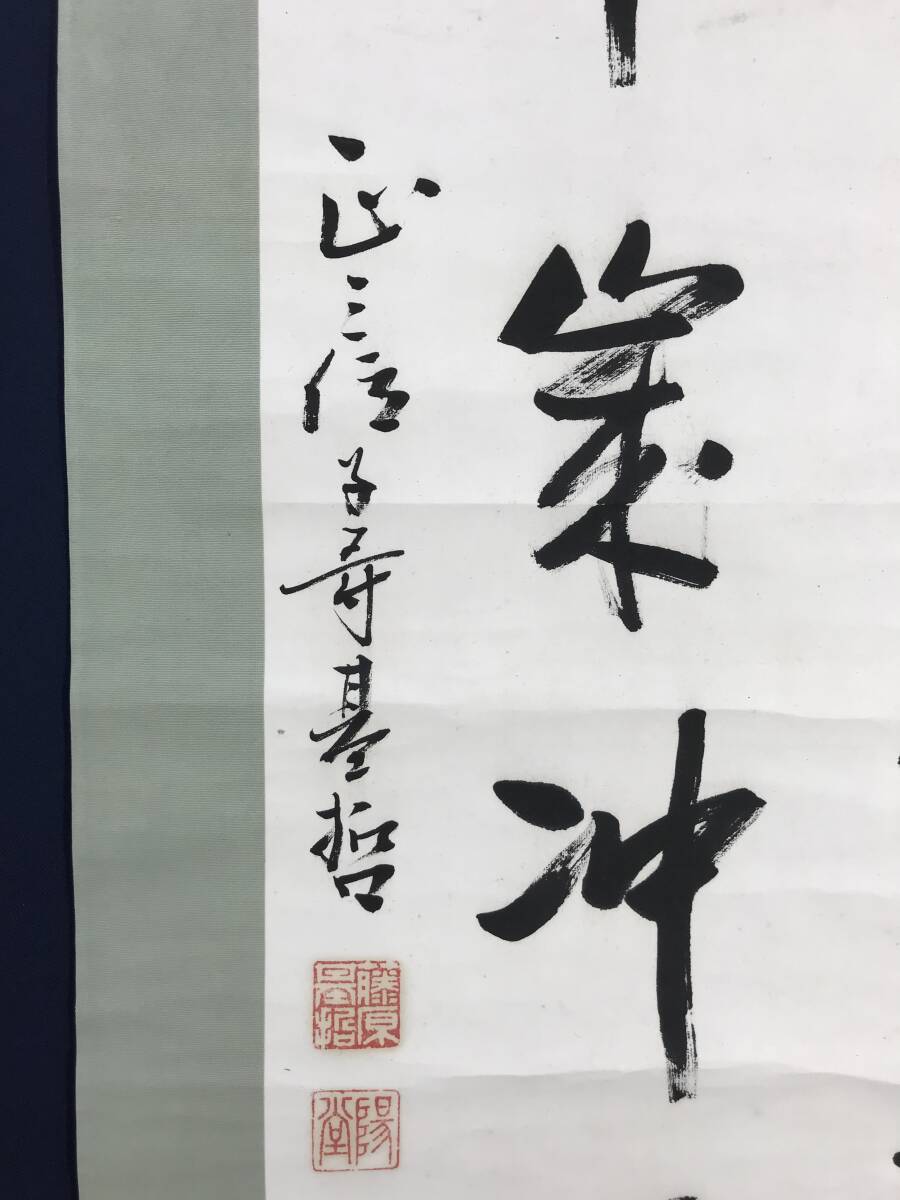 冲
正三位子爵基哲
藤原
基哲
陽
堂